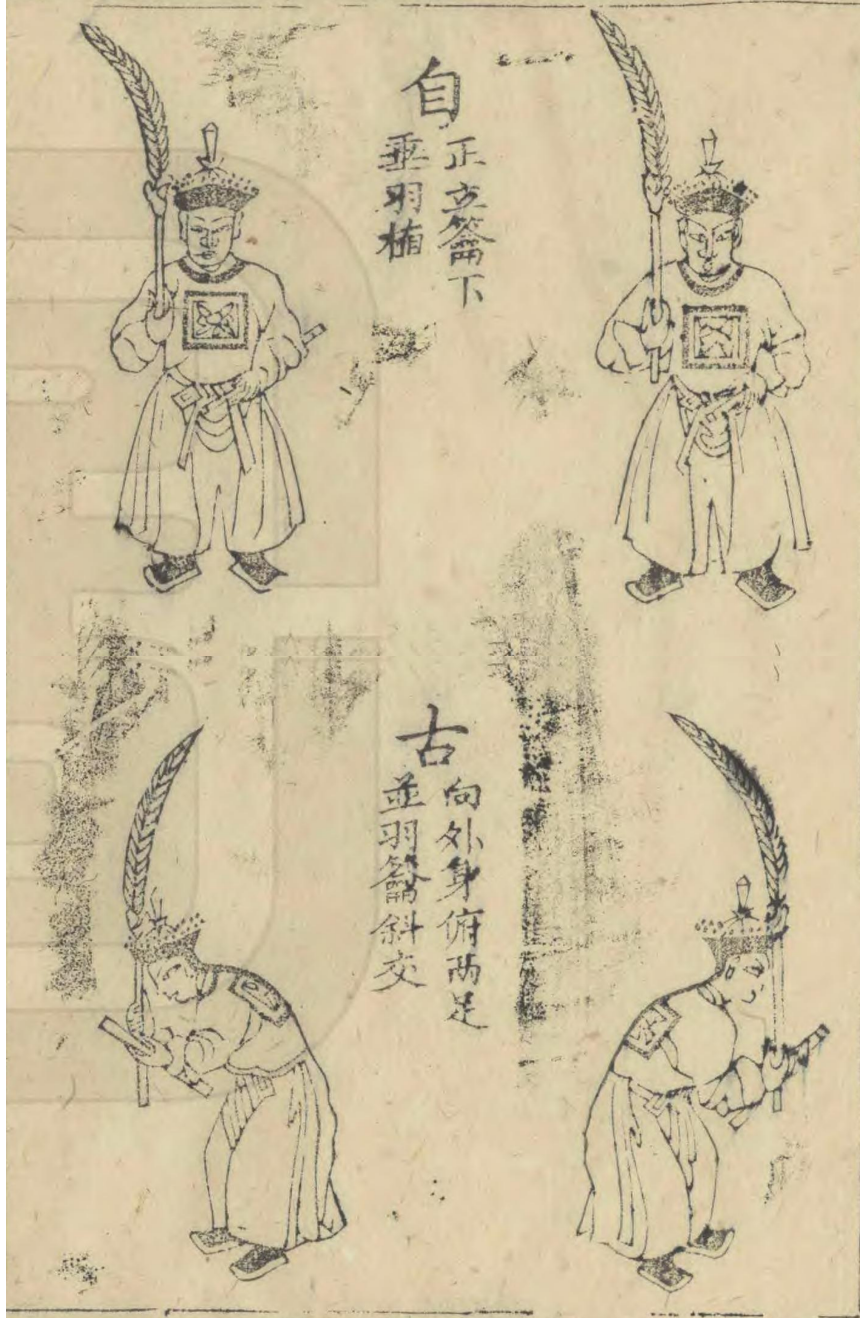 自
正立籥下
垂羽植
古
向外身俯兩足
並羽籥斜交